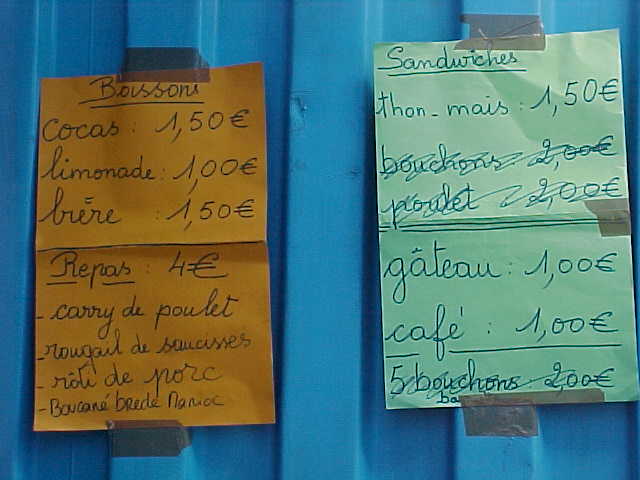 Boissons
cocas : 1,50€
limonade : 1,00€
bière : 1,50€
Repas : 4€
- carry de poulet
- rougail de saucisses
- rôti de porc
- Boucané brede Manioc
Sandwiches
thon-maïs : 1,50€
bouchons 2,00€
poulet 2,00€
gâteau : 1,00€
café : 1,00€
5 bouchons 2,00€